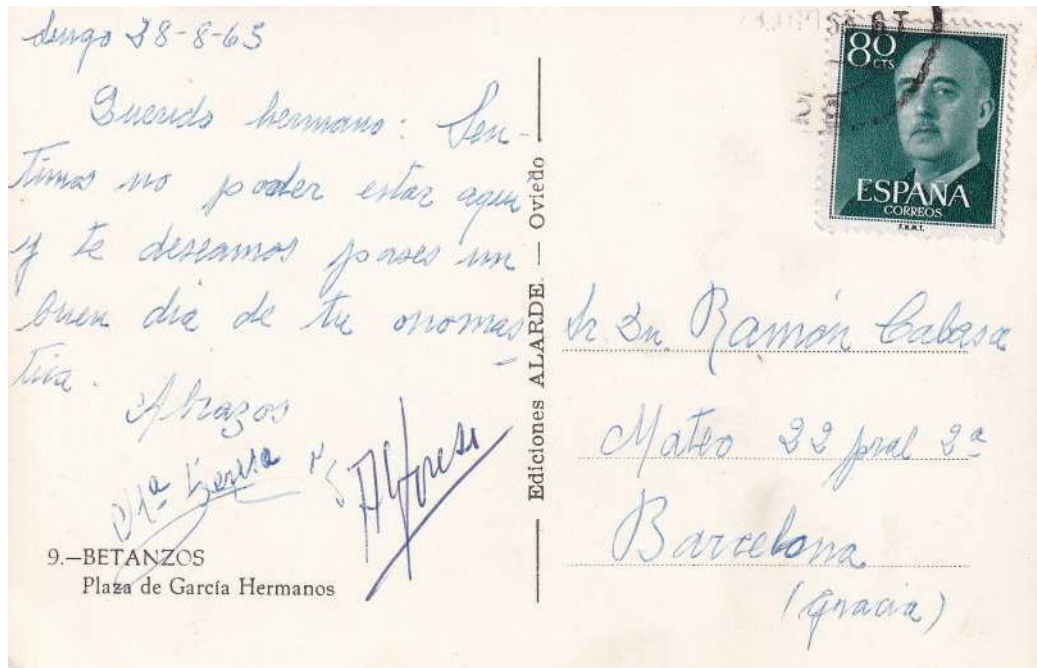 Lugo 28-8-65
Querido hermano: Sen-
timos no poder estar aqui
y te deseamos pases un
buen dia de tu onomas
tica.
Abrazos
Mª Teresa y Alfonso
9.—BETANZOS
Plaza de García Hermanos
Ediciones ALARDE. — Oviedo
80
CTS
ESPAÑA
CORREOS
F.N.M.T.
Sr. Dn. Ramón
Mateo 22 pral 2ª
Barcelona
(Gracia)